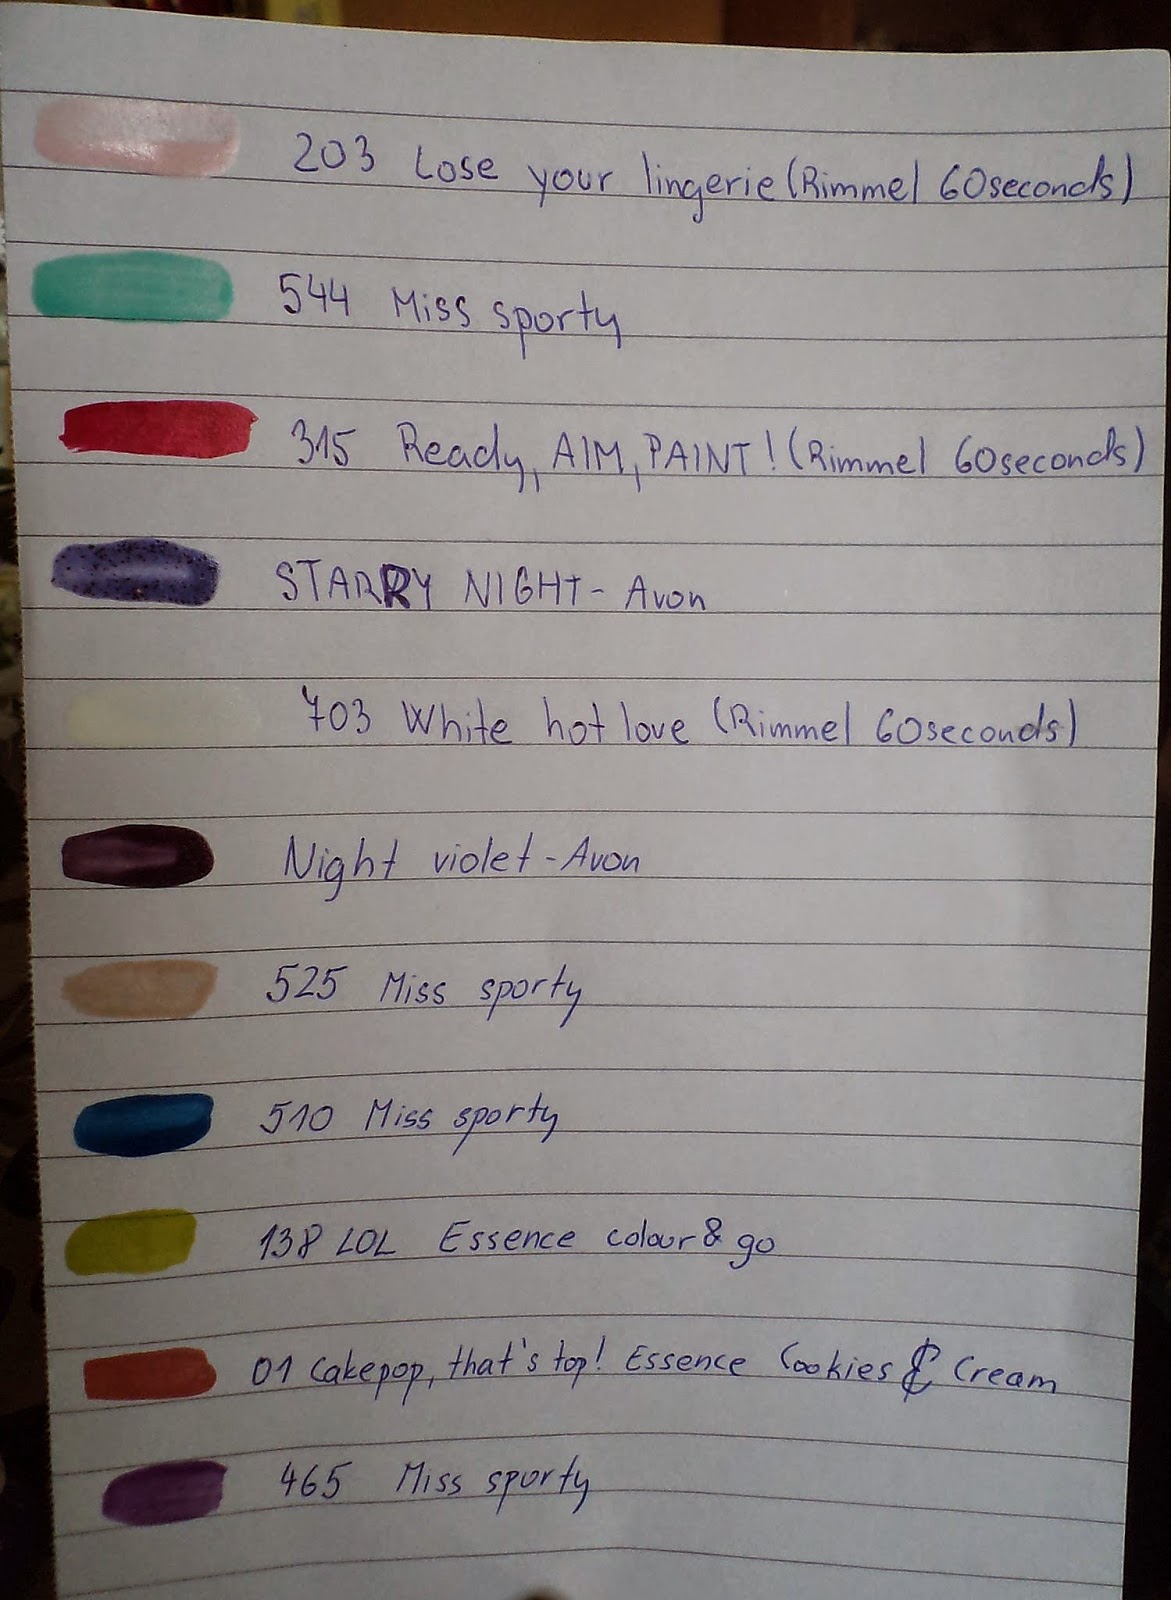 203 Lose your lingerie (Rimmel 60seconds)
544 Miss sporty
315 Ready, AIM, PAINT! (Rimmel 60seconds)
STARRY NIGHT - Avon
703 White hot love (Rimmel 60seconds)
Night violet - Avon
525 Miss sporty
510 Miss sporty
138 LOL Essence colour & go
01 Cakepop, that's top! Essence Cookies & Cream
465 Miss sporty